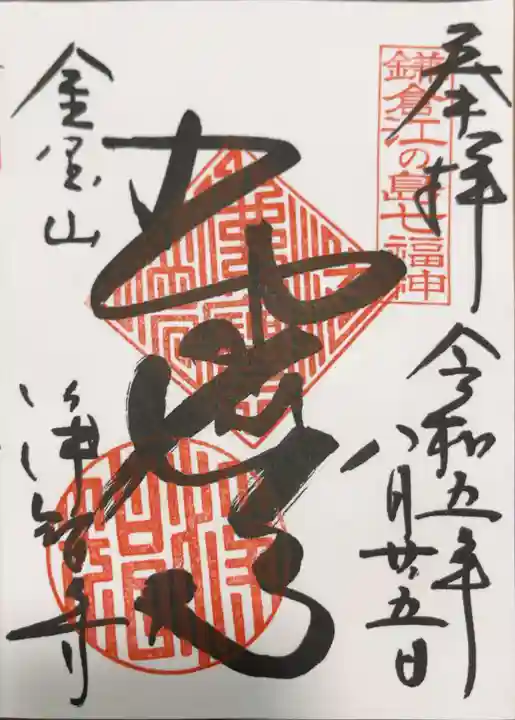 奉拝
鎌倉江の島七福神
令和五年
八月廿五日
布袋尊
金宝山
浄智寺